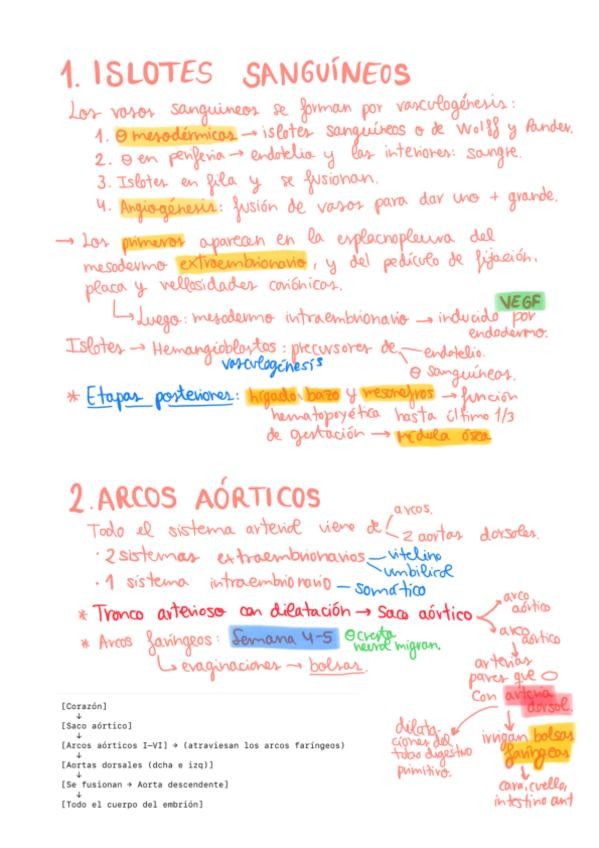 1. ISLOTES SANGUÍNEOS
Los vasos sanguineos se forman por vasculogénesis:
1. θ mesodérmicas → islotes sanguíneos o de Wolff y Pander.
2. θ en periferia → endotelio y las interiores: sangre.
3. Islotes en fila y se fusionan.
4. Angiogénesis: fusión de vasos para dar uno + grande.
→ Los primeros aparecen en la esplacnopleura del
mesodermo extraembrionario, y del pedículo de fijación,
placa y vellosidades coriónicas.
VEGF
↳ Luego: mesodermo intraembrionario → inducido por
endodermo.
Islotes → Hemangioblastos: precursores de
endotelio.
θ sanguíneas.
vasculogénesis
* Etapas posteriores: hígado, bazo y mesonefros → función
hematopoyética hasta último 1/3
de gestación → médula ósea
2. ARCOS AÓRTICOS
Todo el sistema arterial viene de
arcos.
2 aortas dorsales.
· 2 sistemas extraembrionarios
vitelino
umbilical
· 1 sistema intraembrionario — somático
* Tronco arterioso con dilatación → Saco aórtico
arco
aórtico
arco
aórtico
* Arcos faríngeos: Semana 4-5
θ cresta
neural migran.
↳ evaginaciones → bolsas.
arterias
pares que
con arteria
dorsal.
dilata-
ciones del
tubo digestivo
primitivo.
irrigan bolsas
faríngeas
cara, cuello,
intestino ant
[Corazón]
↓
[Saco aórtico]
↓
[Arcos aórticos I–VI] → (atraviesan los arcos faríngeos)
↓
[Aortas dorsales (dcha e izq)]
↓
[Se fusionan → Aorta descendente]
↓
[Todo el cuerpo del embrión]